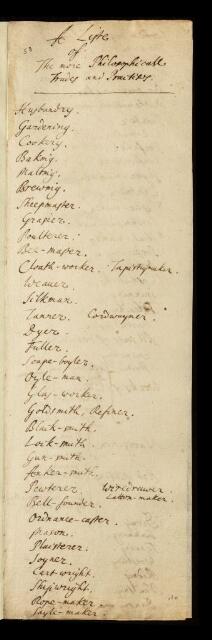 58
A Liste
of
The more Philosophicall
Trades and Practices.
Husbandry.
Gardening.
Cookery.
Baking.
Malting.
Brewing.
Sheepmaster.
Grasier.
Poulterer.
Bee-master.
Cloath-worker. Tapistrymaker.
Weauer.
Silkman.
Tanner. Cordwayner.
Dyer.
Fuller.
Soape-boyler.
Oyle-man.
Glas-worker.
Goldsmith, Refiner.
Black-smith.
Lock-smith
Gun-smith.
Anker-smith.
Peuterer. Wiredrawer.
Laten-maker.
Bell-founder.
Ordnance-caster.
Mason.
Plaisterer.
Joyner.
Cart-wright.
Shipwright.
Rope-maker.
Sayle-maker.